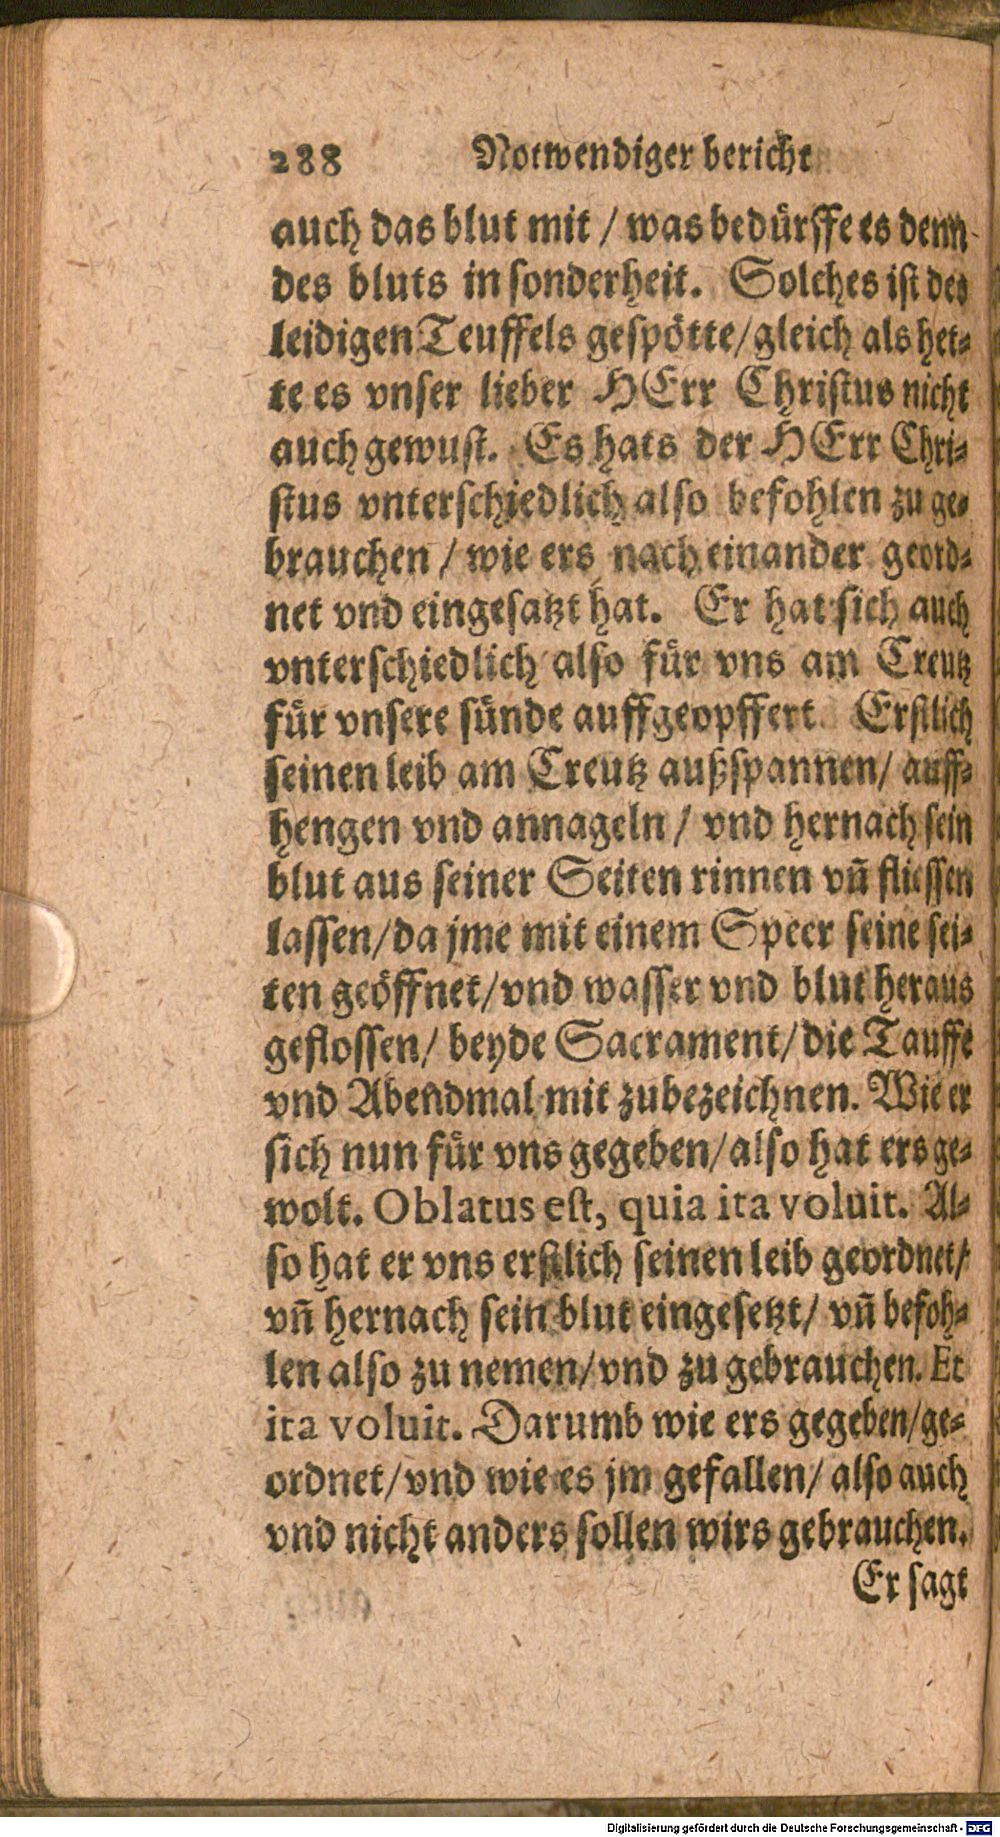 288 Notwendiger bericht
auch das blut mit / was bedürffe es denn
des bluts in sonderheit. Solches ist des
leidigen Teuffels gespötte/gleich als het-
te es vnser lieber HErr Christus nicht
auch gewust. Es hats der HErr Chri-
stus vnterschiedlich also befohlen zu ge-
brauchen / wie ers nach einander geord-
net vnd eingesatzt hat. Er hat sich auch
vnterschiedlich also für vns am Creutz
für vnsere sünde auffgeopffert. Erstlich
seinen leib am Creutz außspannen/ auff-
hengen vnd annageln / vnd hernach sein
blut aus seiner Seiten rinnen vñ fliessen
lassen/da jme mit einem Speer seine sei-
ten geöffnet/vnd wasser vnd blut heraus
geflossen/ beyde Sacrament/die Tauffe
vnd Abendmal mit zubezeichnen. Wie er
sich nun für vns gegeben/also hat ers ge-
wolt. Oblatus est, quia ita voluit. Al-
so hat er vns erstlich seinen leib geordnet/
vñ hernach sein blut eingesetzt/ vñ befoh-
len also zu nemen/vnd zu gebrauchen. Et
ita voluit. Darumb wie ers gegeben/ge-
ordnet/vnd wie es jm gefallen/ also auch
vnd nicht anders sollen wirs gebrauchen.
Er sagt
Digitalisierung gefördert durch die Deutsche Forschungsgemeinschaft - DFG